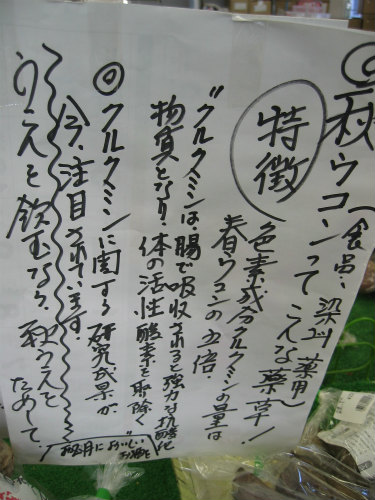 ◎秋ウコンってこんな薬草!
(食品、染料、薬用)
特徴
色素成分クルクミンの量は
春ウコンの五倍.
"クルクミンは、腸で吸収されると強力な抗酸化
物質となり、体の活性酸素を取除く"
◎クルクミンに関する研究成果が
今、注目されています.
うこんを飲むなら、秋うこんを
ためして.